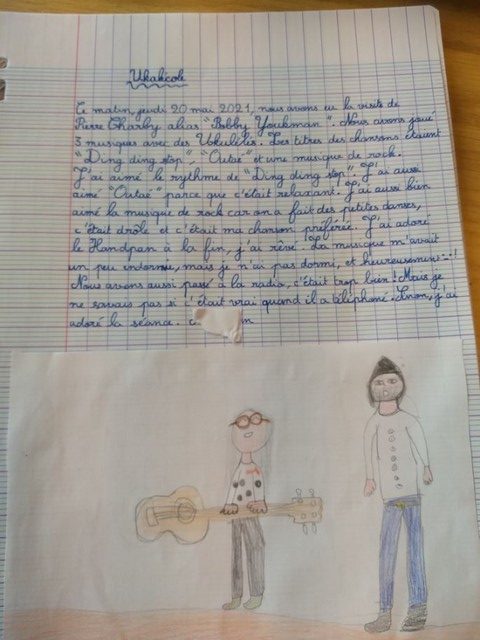 Ukalécole
Ce matin, jeudi 20 mai 2021, nous avons eu la visite de
Pierre Charby alias "Bobby Youkman". Nous avons joué
3 musiques avec des Ukulélés. Les titres des chansons étaient
"Ding ding stop", "Outaé" et une musique de rock.
J'ai aimé le rythme de "Ding ding stop". J'ai aussi
aimé "Outaé" parce que c'était relaxant. J'ai aussi bien
aimé la musique de rock car on a fait des petites danses,
c'était drôle et c'était ma chanson préférée. J'ai adoré
le Handpan à la fin, j'ai rêvé. La musique m'avait
un peu endormie, mais je n'ai pas dormi, et heureusement...!
Nous avons aussi passé à la radio, c'était trop bien! Mais je
ne savais pas si c'était vrai quand il a téléphoné. Sinon, j'ai
adoré la séance.